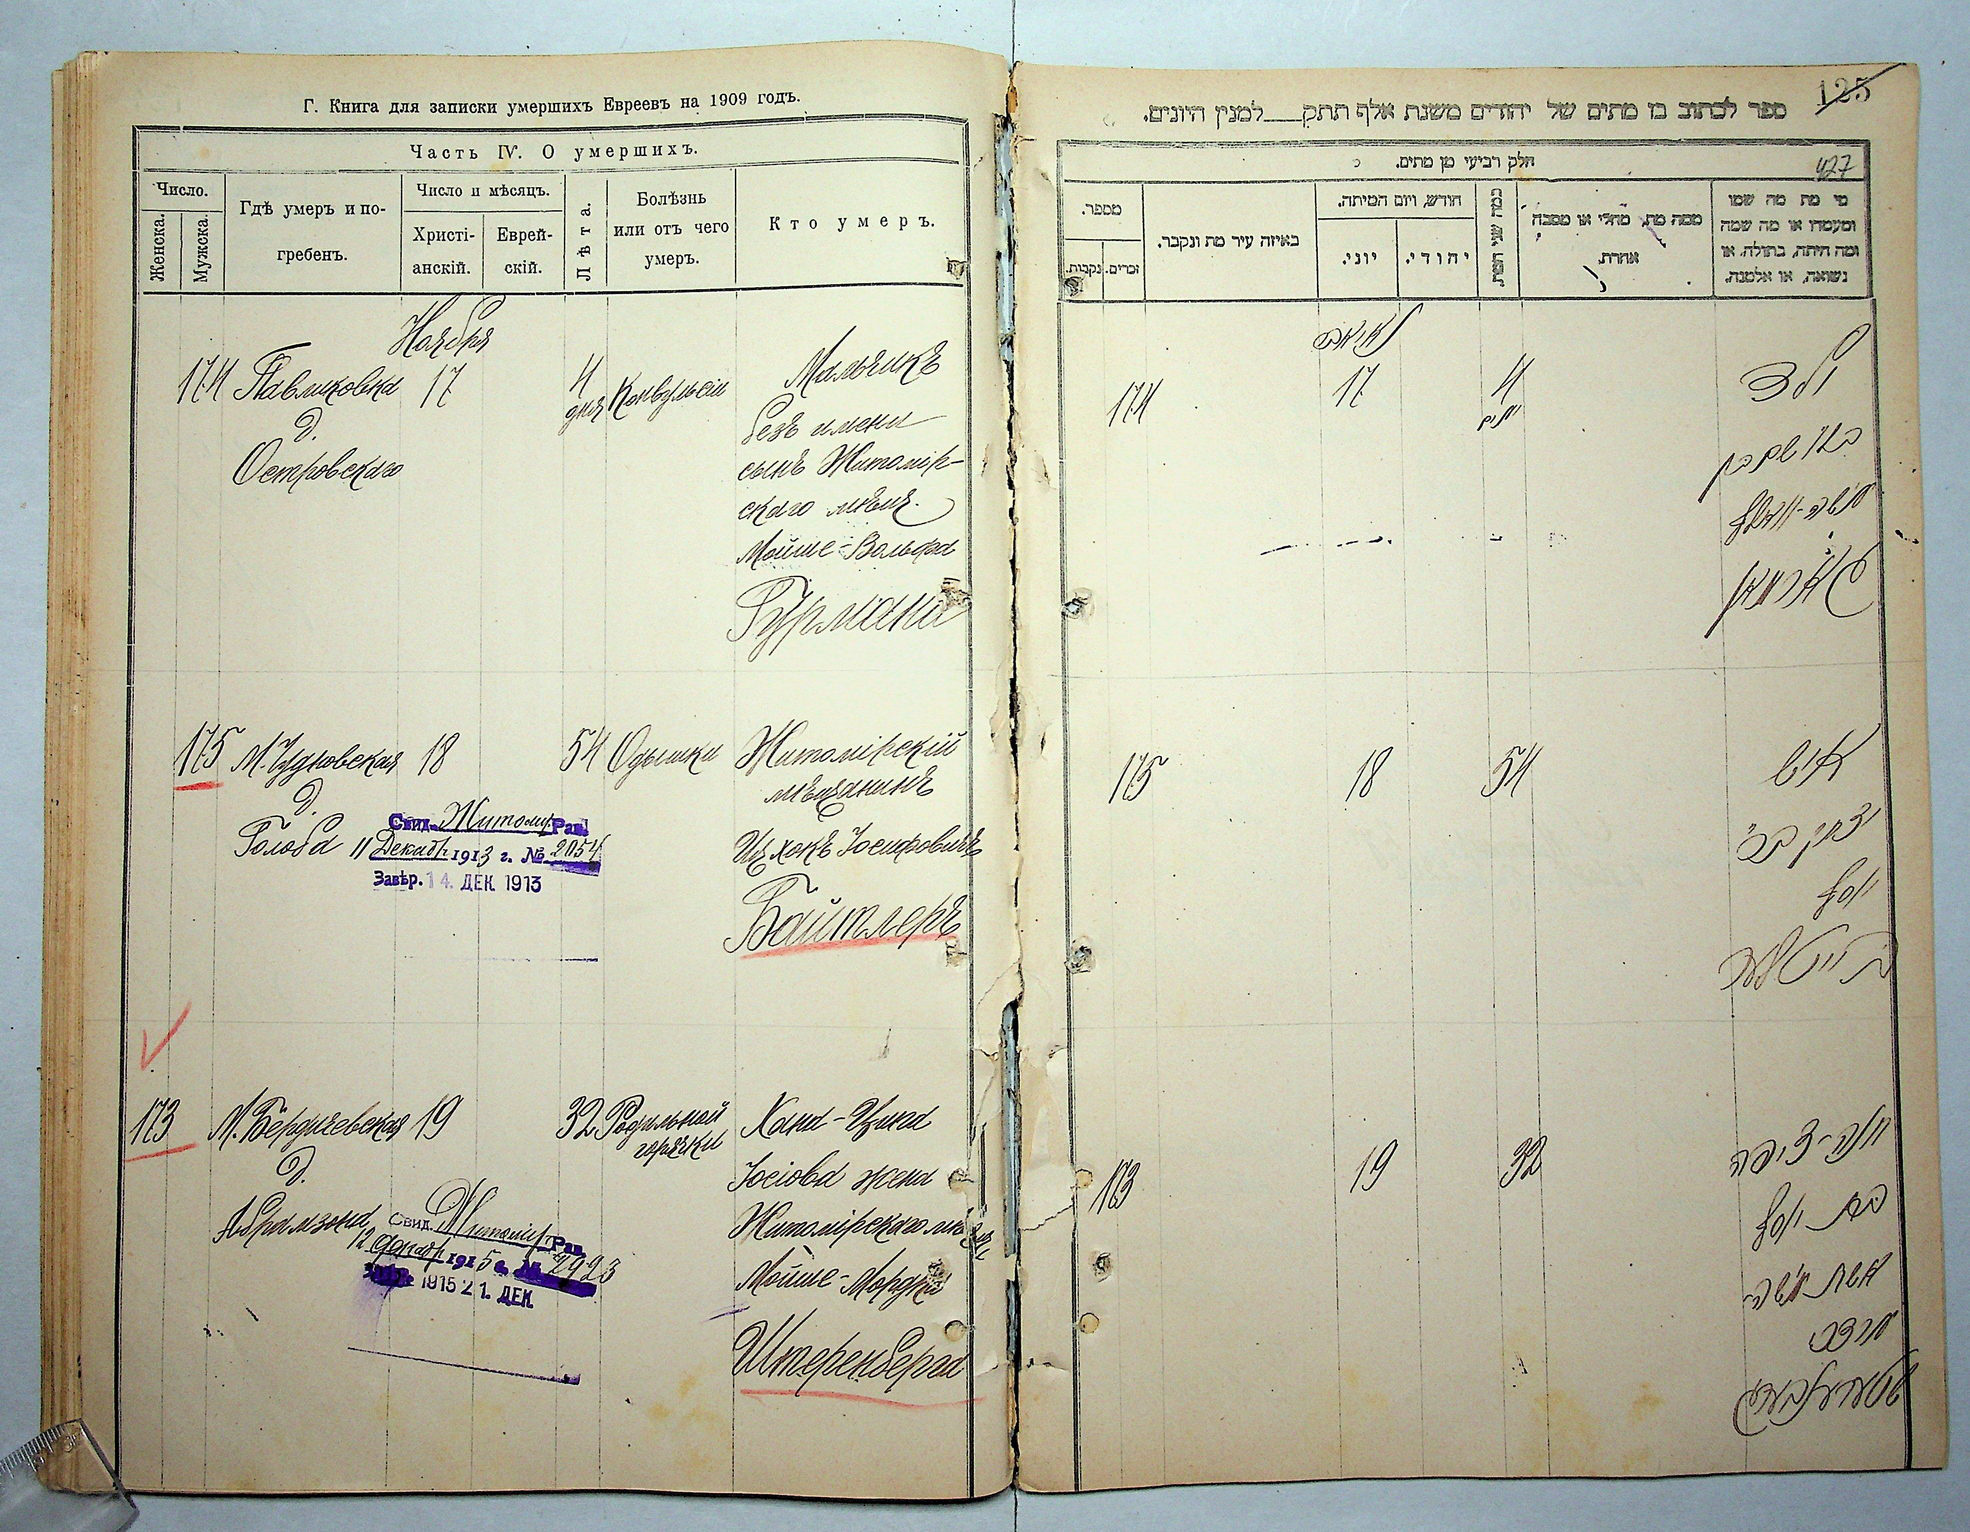 Г. Книга для записки умершихъ Евреевъ на 1909 годъ.
Часть IV. О умершихъ.
Число.
Женска.
Мужска.
Гдѣ умеръ и по-
гребенъ.
Число и мѣсяцъ.
Христі-
анскій.
Еврей-
скій.
Лѣта.
Болѣзнь
или отъ чего
умеръ.
Кто умеръ.
Ноября
174 Павликовка 17 4 Конвульсіи Мальчикъ
дня
безъ имени
д.
Островскаго
сынъ Житомір-
скаго мѣщ.
Мойше-Вольфа
Гурмана
175 М. Чудновская 18 54 Одышки Житомірскій
д.
мѣщанинъ
Голоба
Свид. Житомир. Рав.
11 Декабр 1913 г. № 2054
Завѣр. 14. ДЕК 1913
Ицхокъ Іосифовичъ
Байтлеръ
173 М. Бердичевская 19 32 Родильной Хана-Ципа
горячки
д.
Абрамзона
Свид. Житомір. Рав.
12 1915 г. № 2923
1915 21. ДЕК.
Іосіова жена
Житомірскаго мѣщ.
Мойше-Мордка
Штеренберга
125
427
ספר לכתוב בו מתים של יהודים משנת אלף תתק___למנין היונים.
חלק רביעי מן מתים.
מספר.
נקבות.
זכרים.
באיזה עיר מת ונקבר.
חודש, ויום המיתה.
יוני.
יהודי.
כמה שני המת.
ממה מת, מחלי או מסבה
אחרת.
מי מת מה שמו
ומעמדו או מה שמה
ומה היתה, בתולה, או
נשואה, או אלמנה.
נאיאבר
174 17 4 ילד
ימים
בלי שם בן
משה-וואלף
גורמאן
175 18 54 איש
יצחק בר
יוסף
בייטלער
173 19 32 חנה-ציפה
בת יוסף
אשת משה
מרדכי
שטערענבערג